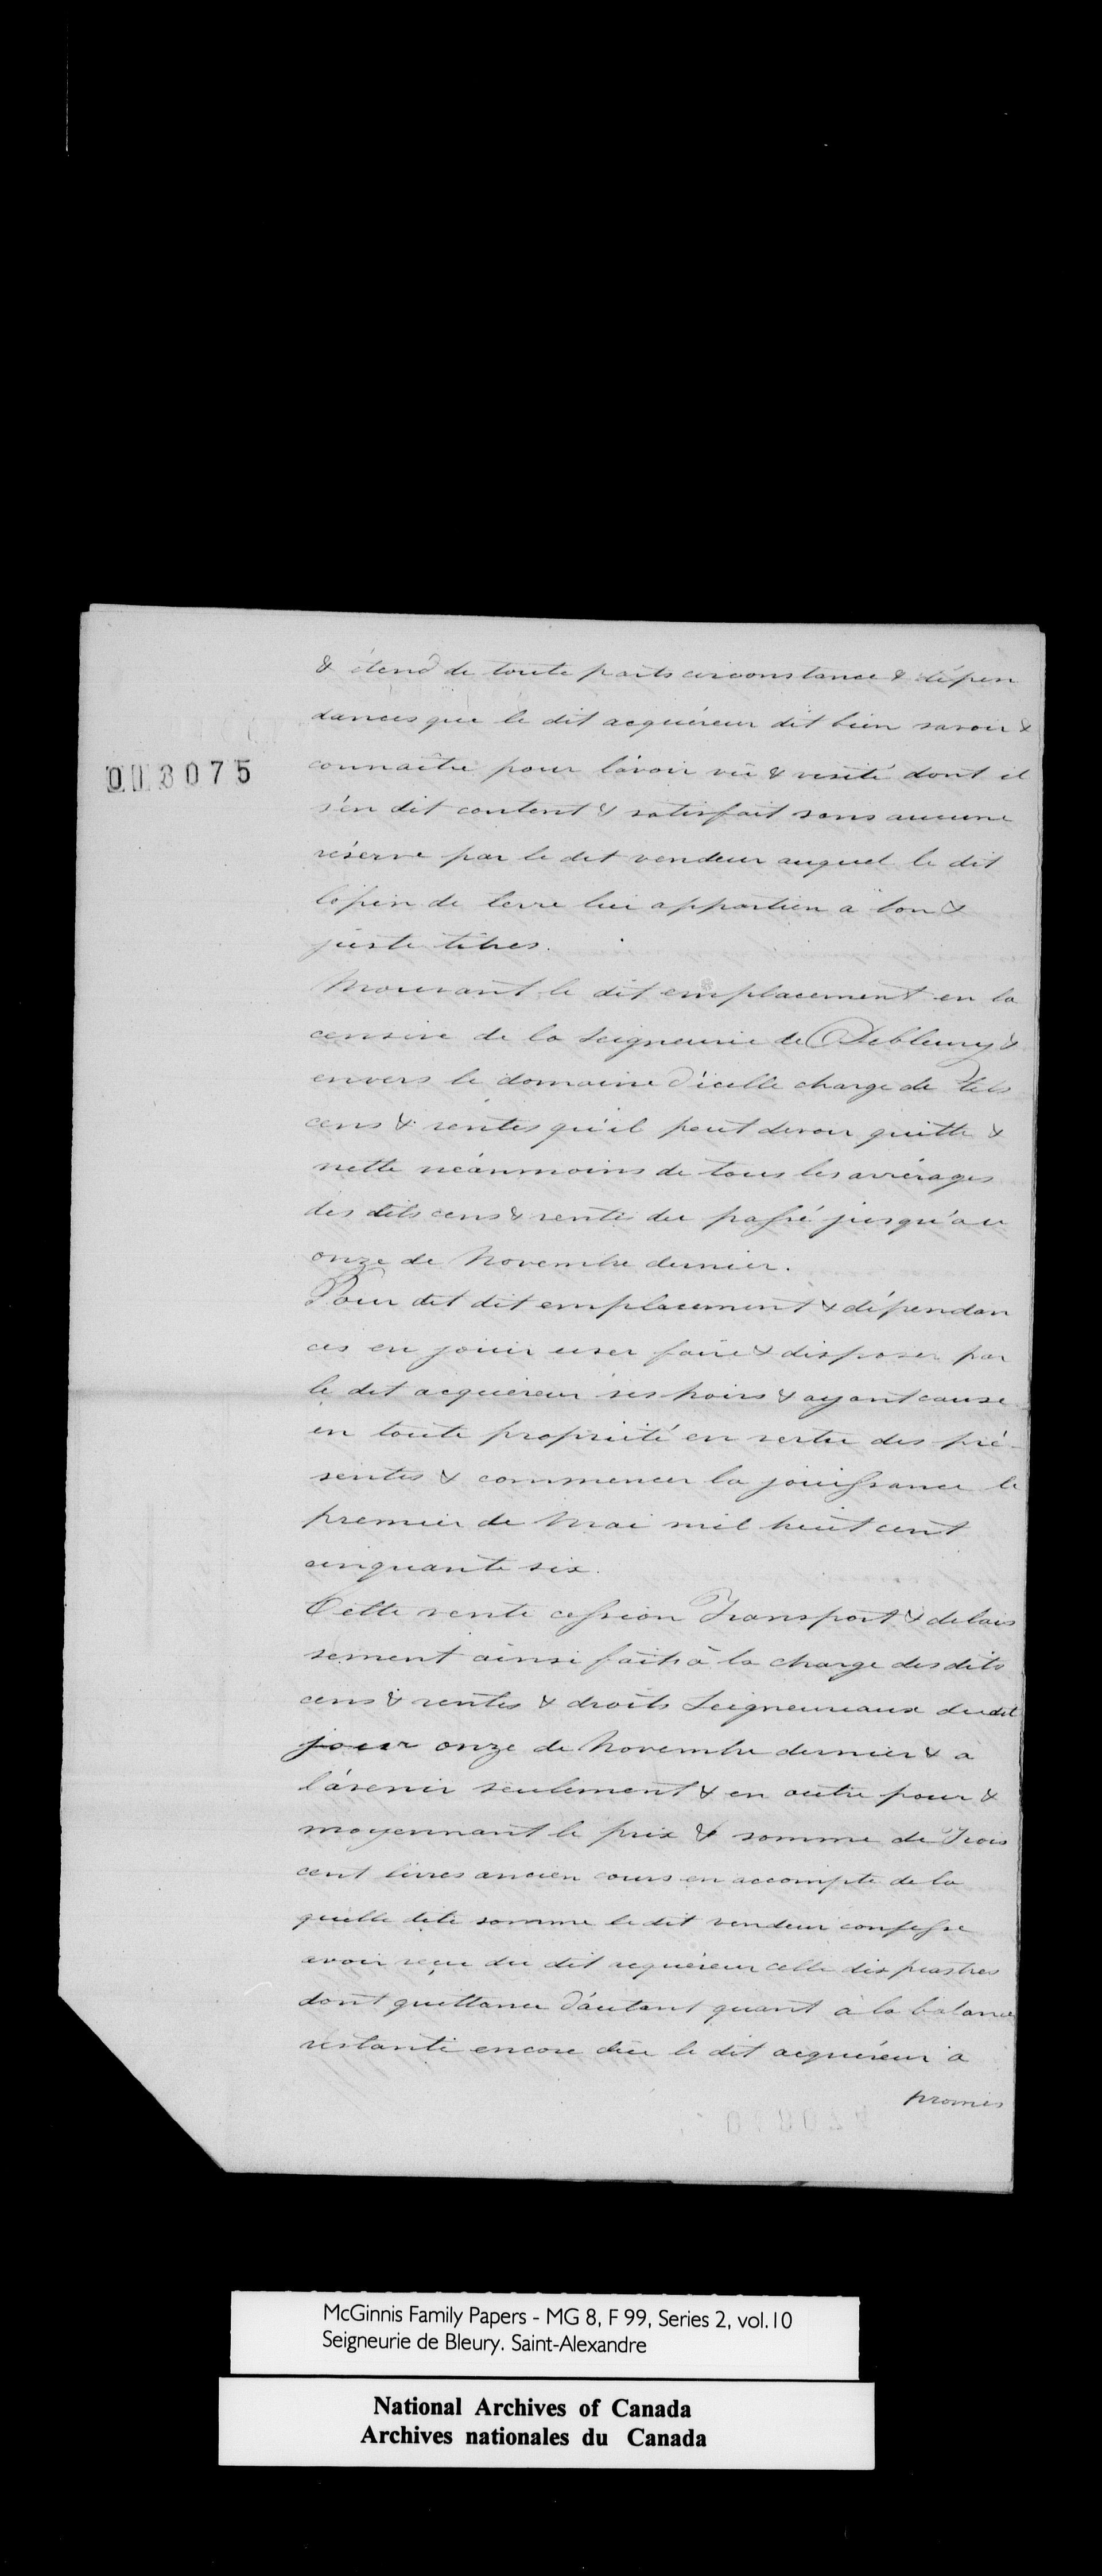 & étend de toute parts circonstance & dépen
dances que le dit acquéreur dit bien savoir &
003075
connaitre pour l'avoir vû & visité dont il
s'en dit content & satisfait sans aucune
réserve par le dit vendeur auquel le dit
lopin de terre lui appartien a bon &
juste titres.
Mouvant le dit emplacement en la
censive de la Seigneurie de Debleury &
envers le domaine d'icelle charge de tels
cens & rentes qu'il peut devoir quitte &
nette néanmoins de tous les arrérages
des dits cens & rentes du passé jusqu'au
onze de Novembre dernier.
Pour det dit emplacement & dépendan
ces en jouir user faire & disposer par
le dit acquéreur ses hoirs & ayant cause
en toute propriété en vertu des pré-
sentes & commencer la jouissance le
premier de Mai mil huit cent
cinquante six.
Cette vente cession Transport & délais
sement ainsi faits à la charge des dits
cens & rentes & droits Seigneuriaux dudit
jour onze de Novembre dernier & a
l'avenir seulement & en outre pour &
moyennant le prix & somme de Trois
cent livres ancien cours en accompte de la
quelle dite somme le dit vendeur confesse
avoir reçu du dit acquéreur celle dix piastres
dont quittance d'autant quant à la balance
restante encore due le dit acquéreur a
promis
McGinnis Family Papers - MG 8, F 99, Series 2, vol.10
Seigneurie de Bleury. Saint-Alexandre
National Archives of Canada
Archives nationales du Canada